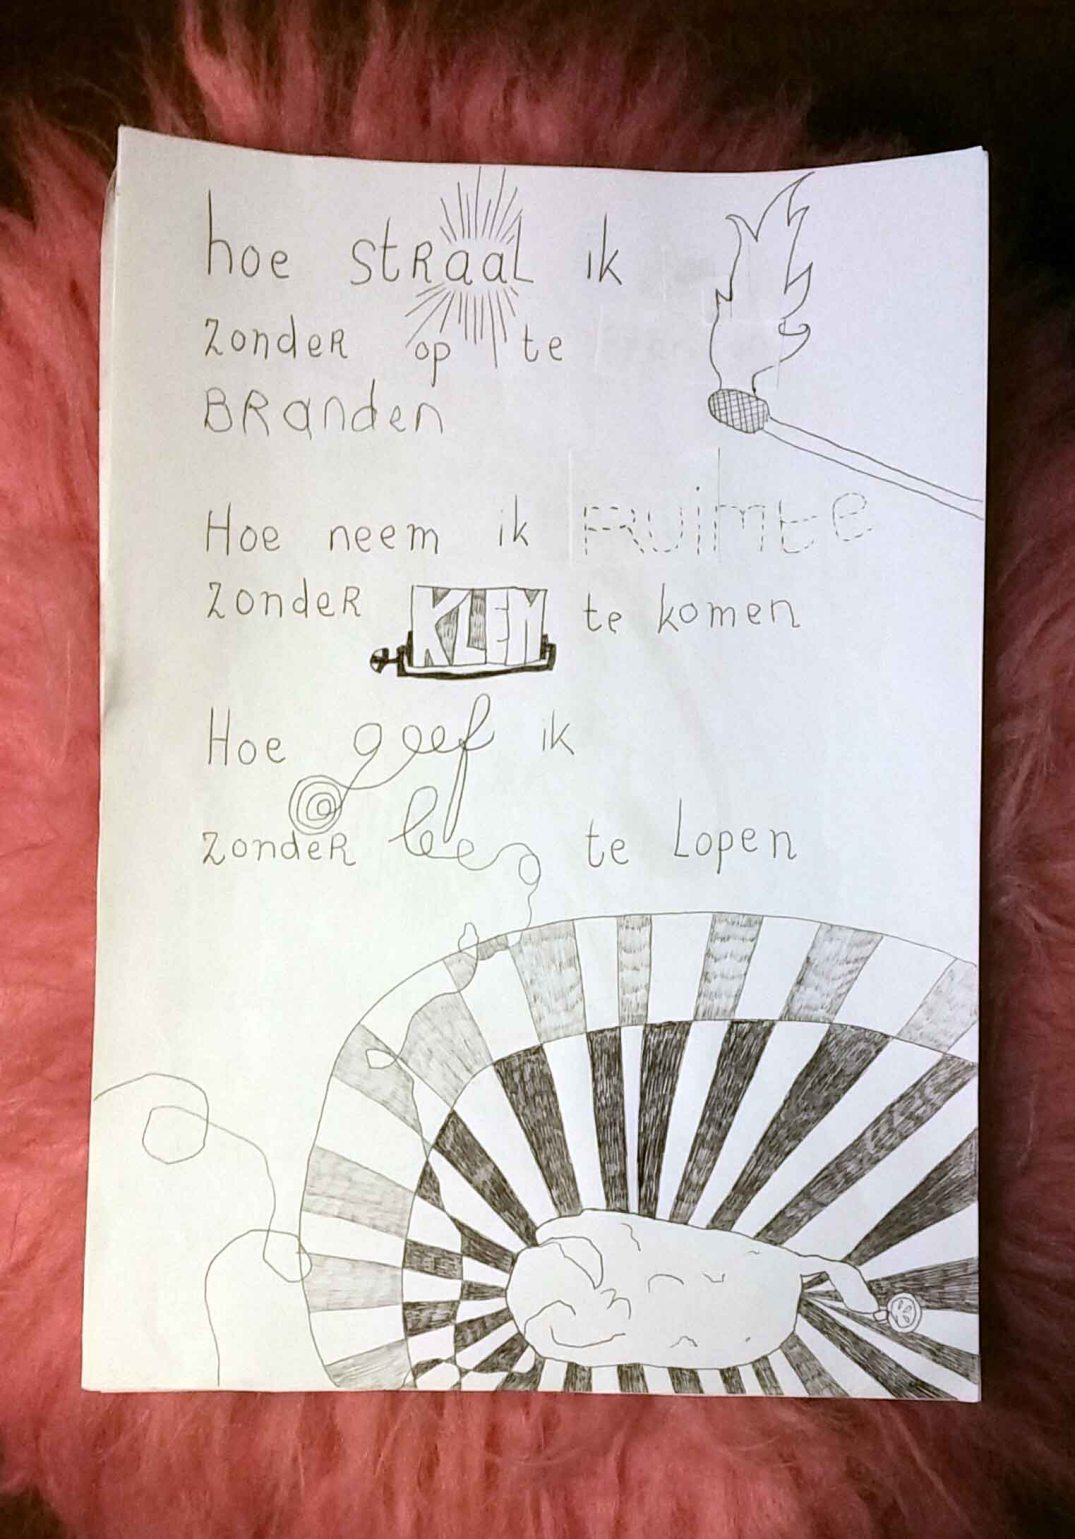 hoe stRaaL ik
zondeR op te
BRanden
Hoe neem ik Ruimte
zondeR KLEM te komen
Hoe geef ik
zondeR leeg te Lopen